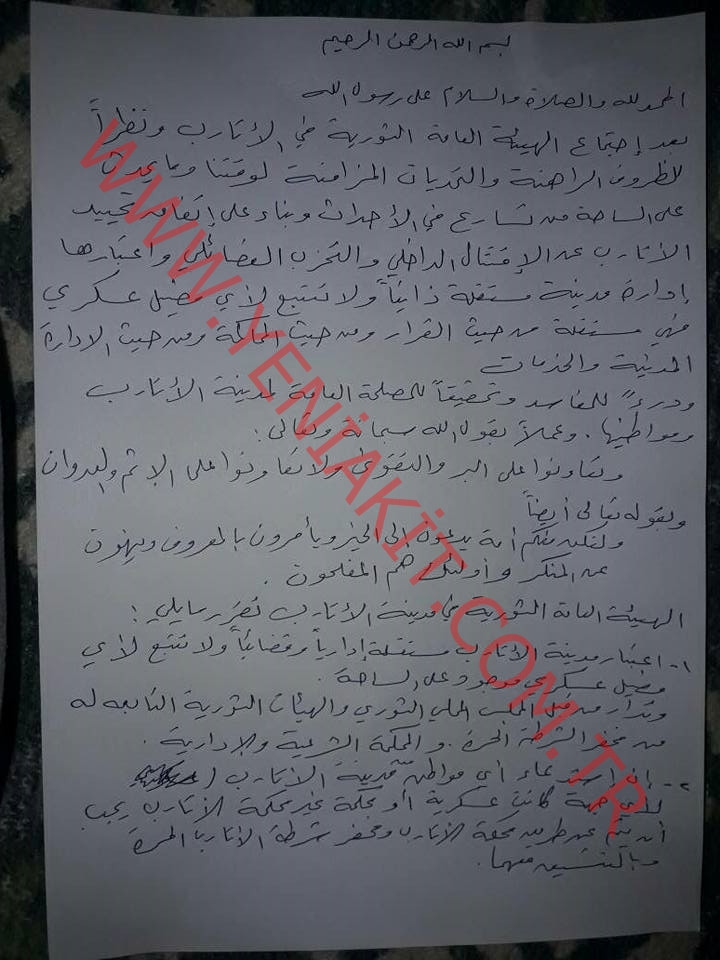 بسم الله الرحمن الرحيم
الحمد لله والصلاة والسلام على رسول الله
بعد إجتماع الهيئة العامة الثورية في الأتارب ونظراً
للظروف الراهنة والتحديات المتزامنة لوقتنا وما يحدث
على الساحة من تسارع في الأحداث وبناء على إتفاق تحييد
الأتارب عن الإقتتال الداخلي والتحزب الفصائلي واعتبارها
إدارة مدينة مستقلة ذاتياً ولا تتبع لأي فصيل عسكري
فهي مستقلة من حيث القرار ومن حيث المحكمة ومن حيث الادارة
المدنية والخدمات
ودرءً للمفاسد وتحقيقاً للمصلحة العامة لمدينة الأتارب
ومواطنيها . وعملاً بقول الله سبحانة وتعالى :
وتعاونوا على البر والتقوى ولا تعاونوا على الإثم والعدوان
وبقوله تعالى أيضاً
ولتكن منكم أمة يدعون إلى الخير ويأمرون بالمعروف وينهون
عن المنكر وأولئك هم المفلحون .
الهيئة العامة الثورية في مدينة الأتارب تقرر مايلي :
١- اعتبار مدينة الأتارب مستقلة إدارياً وقضائياً ولا تتبع لأي
فصيل عسكري موجود على الساحة .
وتدار من قبل المجلس المحلي الثوري والهيئات الثورية التابعه له
من مخفر الشرطة الحرة . والمحكمة الشرعية والإدارية .
٢- إن استدعاء أي مواطن من مدينة الأتارب (
لأي جهة كانت عسكرية أو محكمة غير محكمة الأتارب يجب
أن يتم عن طريق محكمة الأتارب ومخفر شرطة الأتارب الحرة
وبالتنسيق معهما .
WWW.YENİAKİT.COM.TR